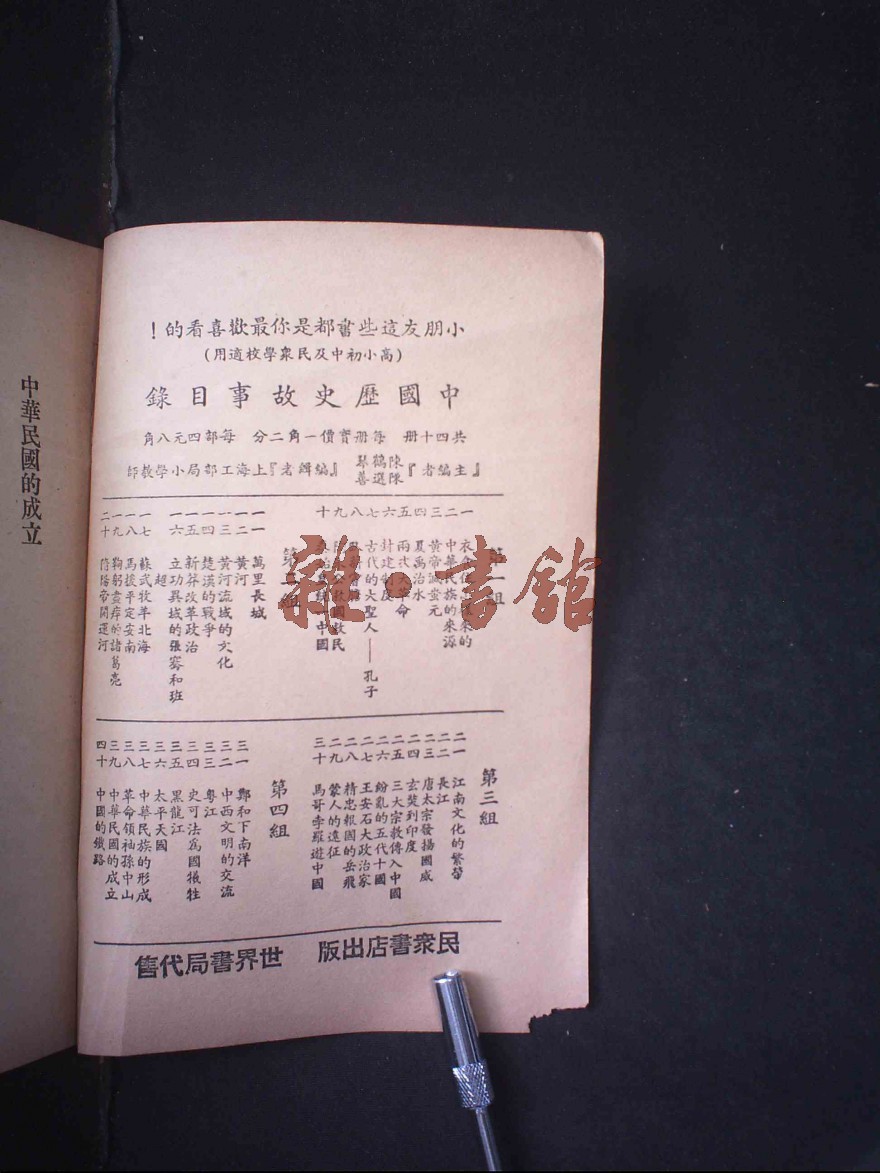 小朋友這些書都是你最歡喜看的！
（高小初中及民衆學校適用）
中國歷史故事目錄
共四十册 每册實價一角二分 每部四元八角
『主編者』陳鶴琴 陳選善 『編輯者』上海工部局小學教師
第一組
一
二 中華民族的來源
三 黃帝滅蚩尤
四 夏禹治水
五 兩次大革命
六 封建制度
七 古代的大聖人——孔子
八
九 救國救民
十 中國
第二組
一一 萬里長城
一二 黃河
一三 黃河流域的文化
一四 楚漢的戰爭
一五 新莽改革政治
一六 立功異域的張騫和班超
一七 蘇武牧羊北海
一八 馬援平定安南
一九 鞠躬盡瘁的諸葛亮
二十 隋煬帝開運河
第三組
二一 江南文化的繁榮
二二 長江
二三 唐太宗發揚國威
二四 玄奘到印度
二五 三大宗教傳入中國
二六 紛亂的五代十國
二七 王安石大政治家
二八 精忠報國的岳飛
二九 蒙人的遠征
三十 馬哥孛羅遊中國
第四組
三一 鄭和下南洋
三二 中西文明的交流
三三 粵江
三四 史可法爲國犧牲
三五 黑龍江
三六 太平天國
三七 中華民族的形成
三八 革命領袖孫中山
三九 中華民國的成立
四十 中國的鐵路
民衆書店出版 世界書局代售
中華民國的成立
雜·書館